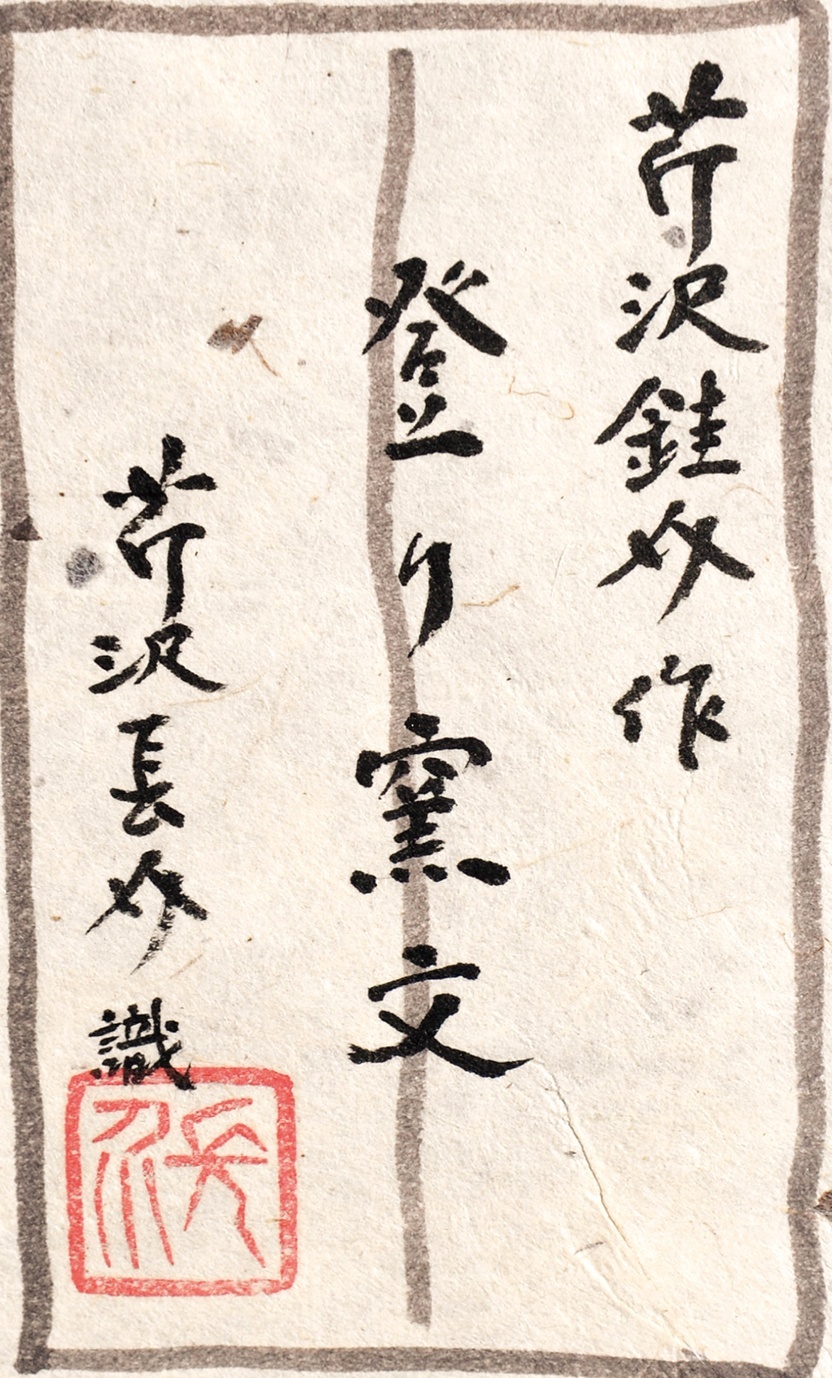 芹沢銈介作
登り窯文
芹沢長介識